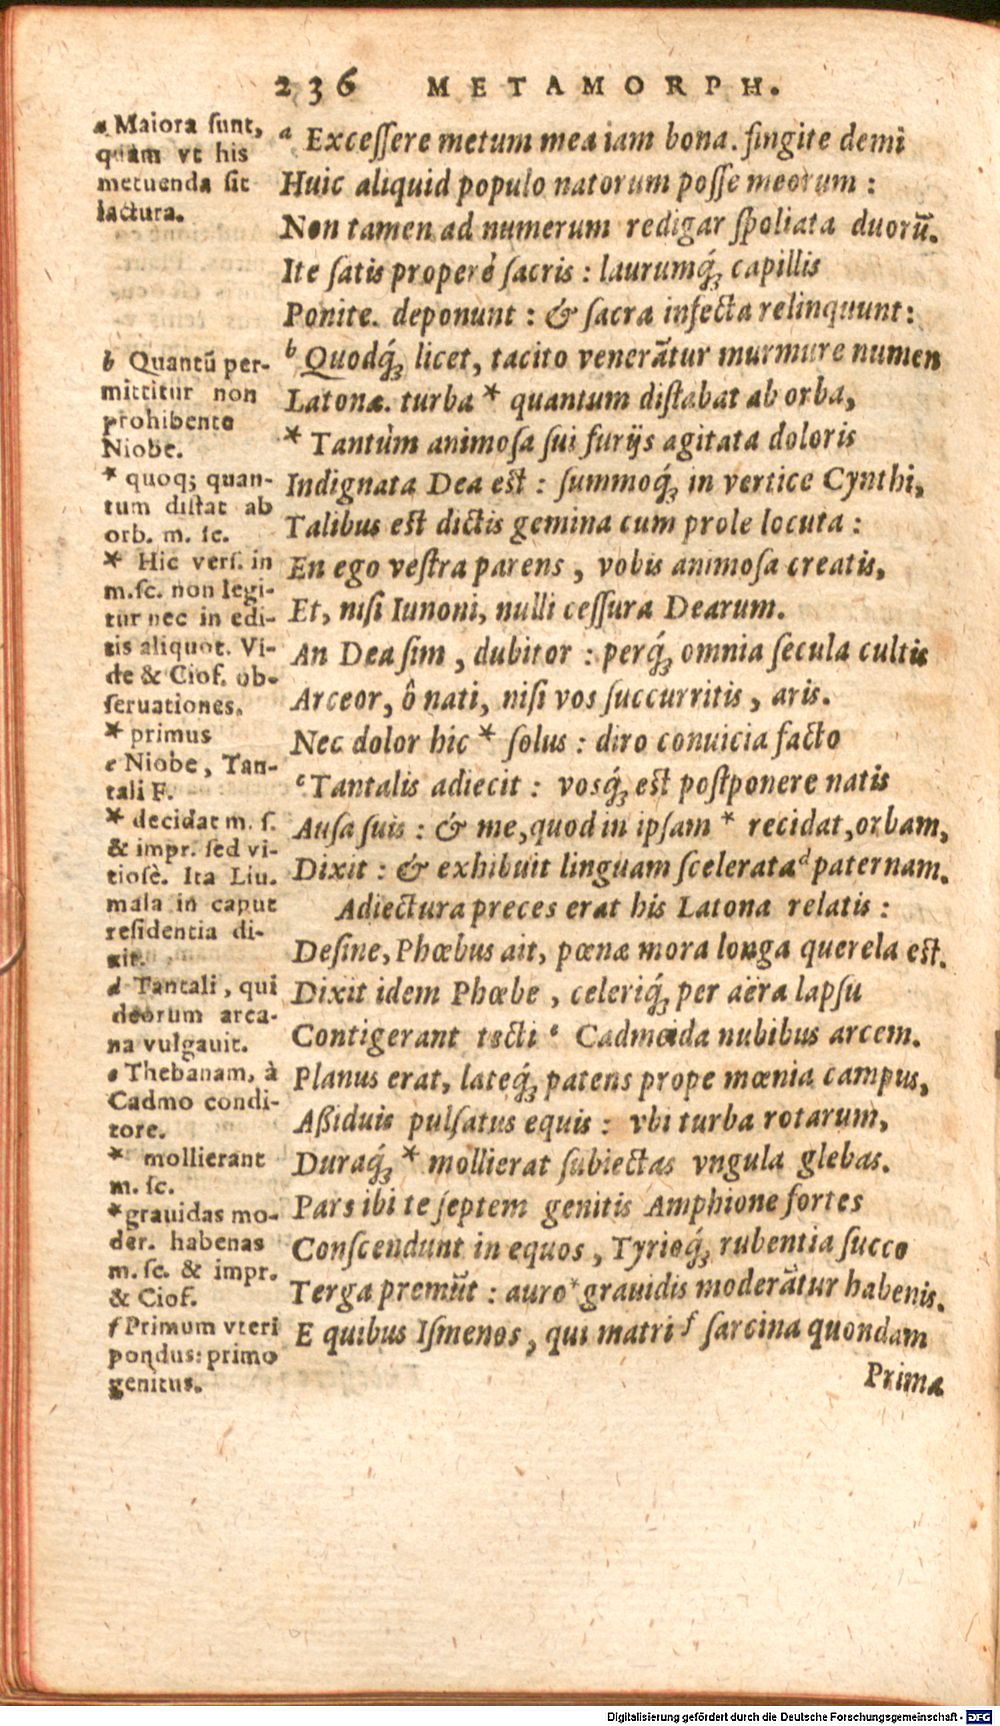 236 METAMORPH.
a Maiora sunt,
quàm vt his
metuenda sit
iactura.
b Quantū per-
mittitur non
prohibente
Niobe.
* quoq; quan-
tum distat ab
orb. m. sc.
* Hic vers. in
m.sc. non legi-
tur nec in edi-
tis aliquot. Vi-
de & Ciof. ob-
seruationes.
* primus
c Niobe, Tan-
tali F.
* decidat m. s.
& impr. sed vi-
tiosè. Ita Liu.
mala in caput
residentia di-
xit.
d Tantali, qui
deorum arca-
na vulgauit.
e Thebanam, à
Cadmo condi-
tore.
* mollierant
m. sc.
*grauidas mo-
der. habenas
m. sc. & impr.
& Ciof.
f Primum vteri
pondus: primo
genitus.
a Excessere metum mea iam bona. fingite demi
Huic aliquid populo natorum posse meorum :
Non tamen ad numerum redigar spoliata duorū.
Ite satis properè sacris : laurumq́; capillis
Ponite. deponunt : & sacra infecta relinquunt:
b Quodq́; licet, tacito venerātur murmure numen
Latonæ. turba * quantum distabat ab orba,
* Tantùm animosa sui furijs agitata doloris
Indignata Dea est : summoq́; in vertice Cynthi,
Talibus est dictis gemina cum prole locuta :
En ego vestra parens, vobis animosa creatis,
Et, nisi Iunoni, nulli cessura Dearum.
An Dea sim, dubitor : perq́; omnia secula cultis
Arceor, ô nati, nisi vos succurritis, aris.
Nec dolor hic * solus : diro conuicia facto
c Tantalis adiecit : vosq́; est postponere natis
Ausa suis : & me, quod in ipsam * recidat, orbam,
Dixit : & exhibuit linguam scelerata d paternam.
Adiectura preces erat his Latona relatis :
Desine, Phœbus ait, pœnæ mora longa querela est.
Dixit idem Phœbe, celeriq́; per aëra lapsu
Contigerant tecti e Cadmeida nubibus arcem.
Planus erat, lateq́; patens prope mœnia campus,
Aßiduis pulsatus equis : vbi turba rotarum,
Duraq́; * mollierat subiectas vngula glebas.
Pars ibi te septem genitis Amphione fortes
Conscendunt in equos, Tyrioq́; rubentia succo
Terga premūt : auro * grauidis moderātur habenis.
E quibus Ismenos, qui matri f sarcina quondam
Prima
Digitalisierung gefördert durch die Deutsche Forschungsgemeinschaft - DFG